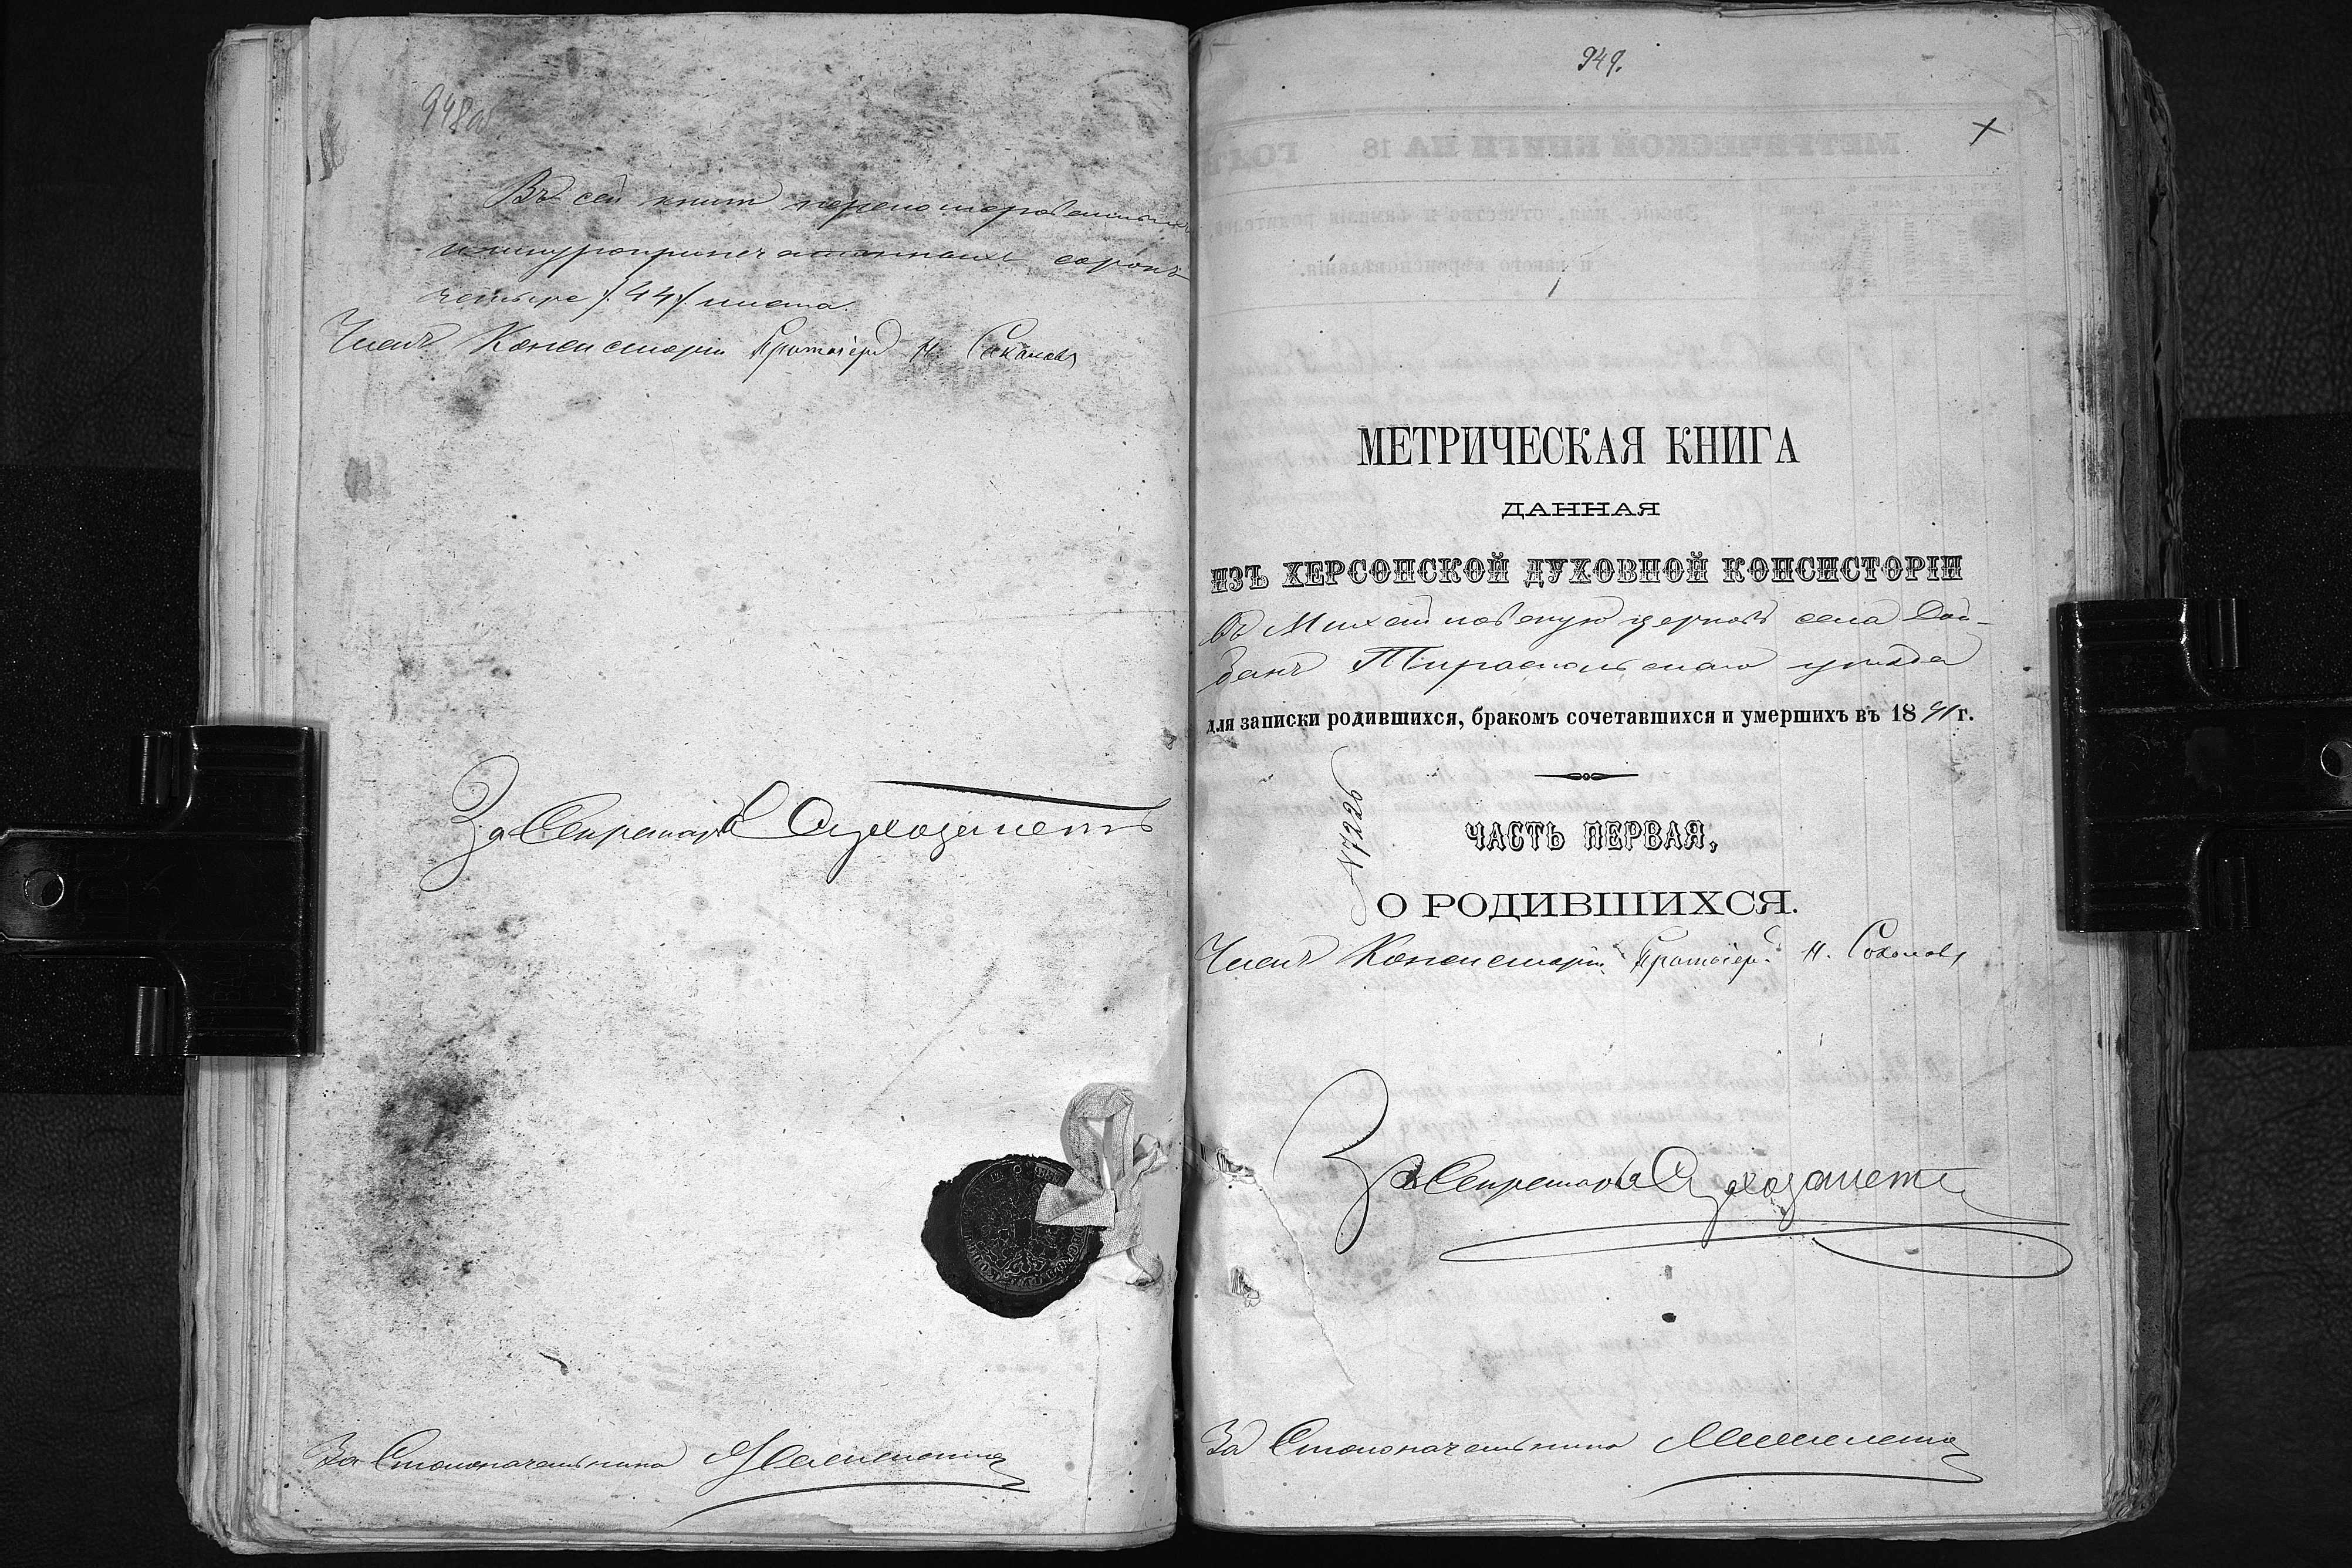 948об
Въ сей книгѣ перенумерованныхъ
и шнуроприпечатанныхъ сорокъ
четыре /44/ листа.
Членъ Консисторіи Протоіерей Н. Соколовъ
За Секретаря
За Столоначальника
949.
МЕТРИЧЕСКАЯ КНИГА
ДАННАЯ
ИЗЪ ХЕРСОНСКОЙ ДУХОВНОЙ КОНСИСТОРІИ
въ Михайловскую церковь села Дой-
банъ Тираспольскаго уѣзда
для записки родившихся, бракомъ сочетавшихся и умершихъ въ 1891 г.
№7226
ЧАСТЬ ПЕРВАЯ,
О РОДИВШИХСЯ.
Членъ Консисторіи Протоіерей Н. Соколовъ
За Секретаря
За Столоначальника